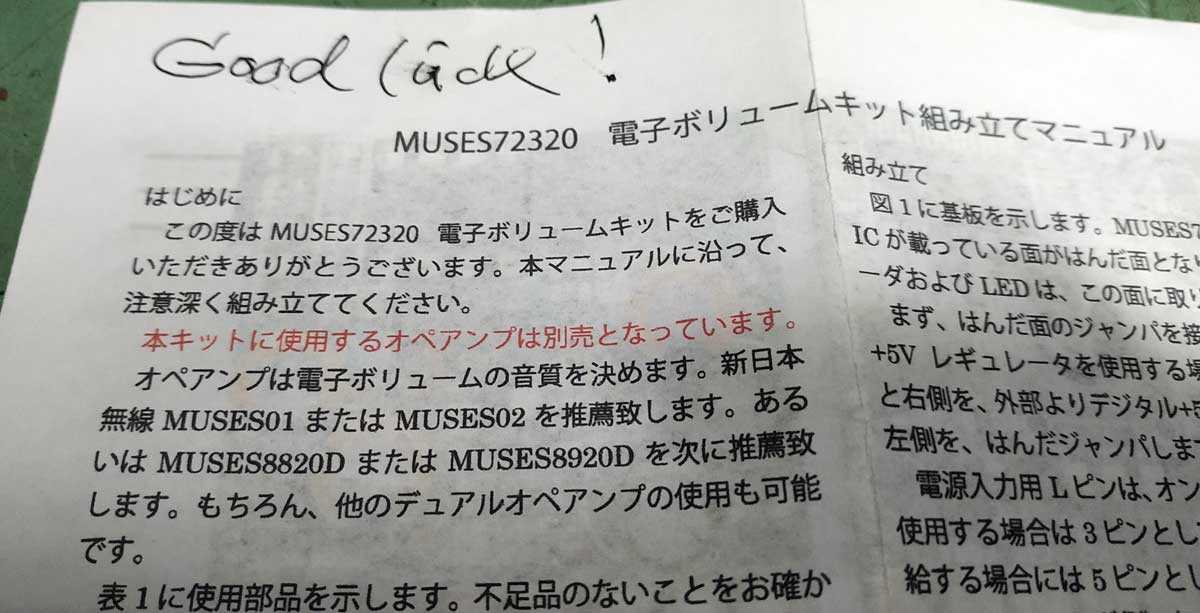 Good luck!
MUSES72320 電子ボリュームキット組み立てマニュアル
はじめに
この度は MUSES72320 電子ボリュームキットをご購入
いただきありがとうございます。本マニュアルに沿って、
注意深く組み立ててください。
本キットに使用するオペアンプは別売となっています。
オペアンプは電子ボリュームの音質を決めます。新日本
無線 MUSES01 または MUSES02 を推薦致します。ある
いは MUSES8820D または MUSES8920D を次に推薦致
します。もちろん、他のデュアルオペアンプの使用も可能
です。
表1に使用部品を示します。不足品のないことをお確か
組み立て
図1に基板を示します。MUSES7
ICが載っている面がはんだ面となり
ーダおよびLEDは、この面に取り
まず、はんだ面のジャンパを接
+5V レギュレータを使用する場
と右側を、外部よりデジタル+5
左側を、はんだジャンパします
電源入力用Lピンは、オン
使用する場合は3ピンとし
給する場合には5ピンとし